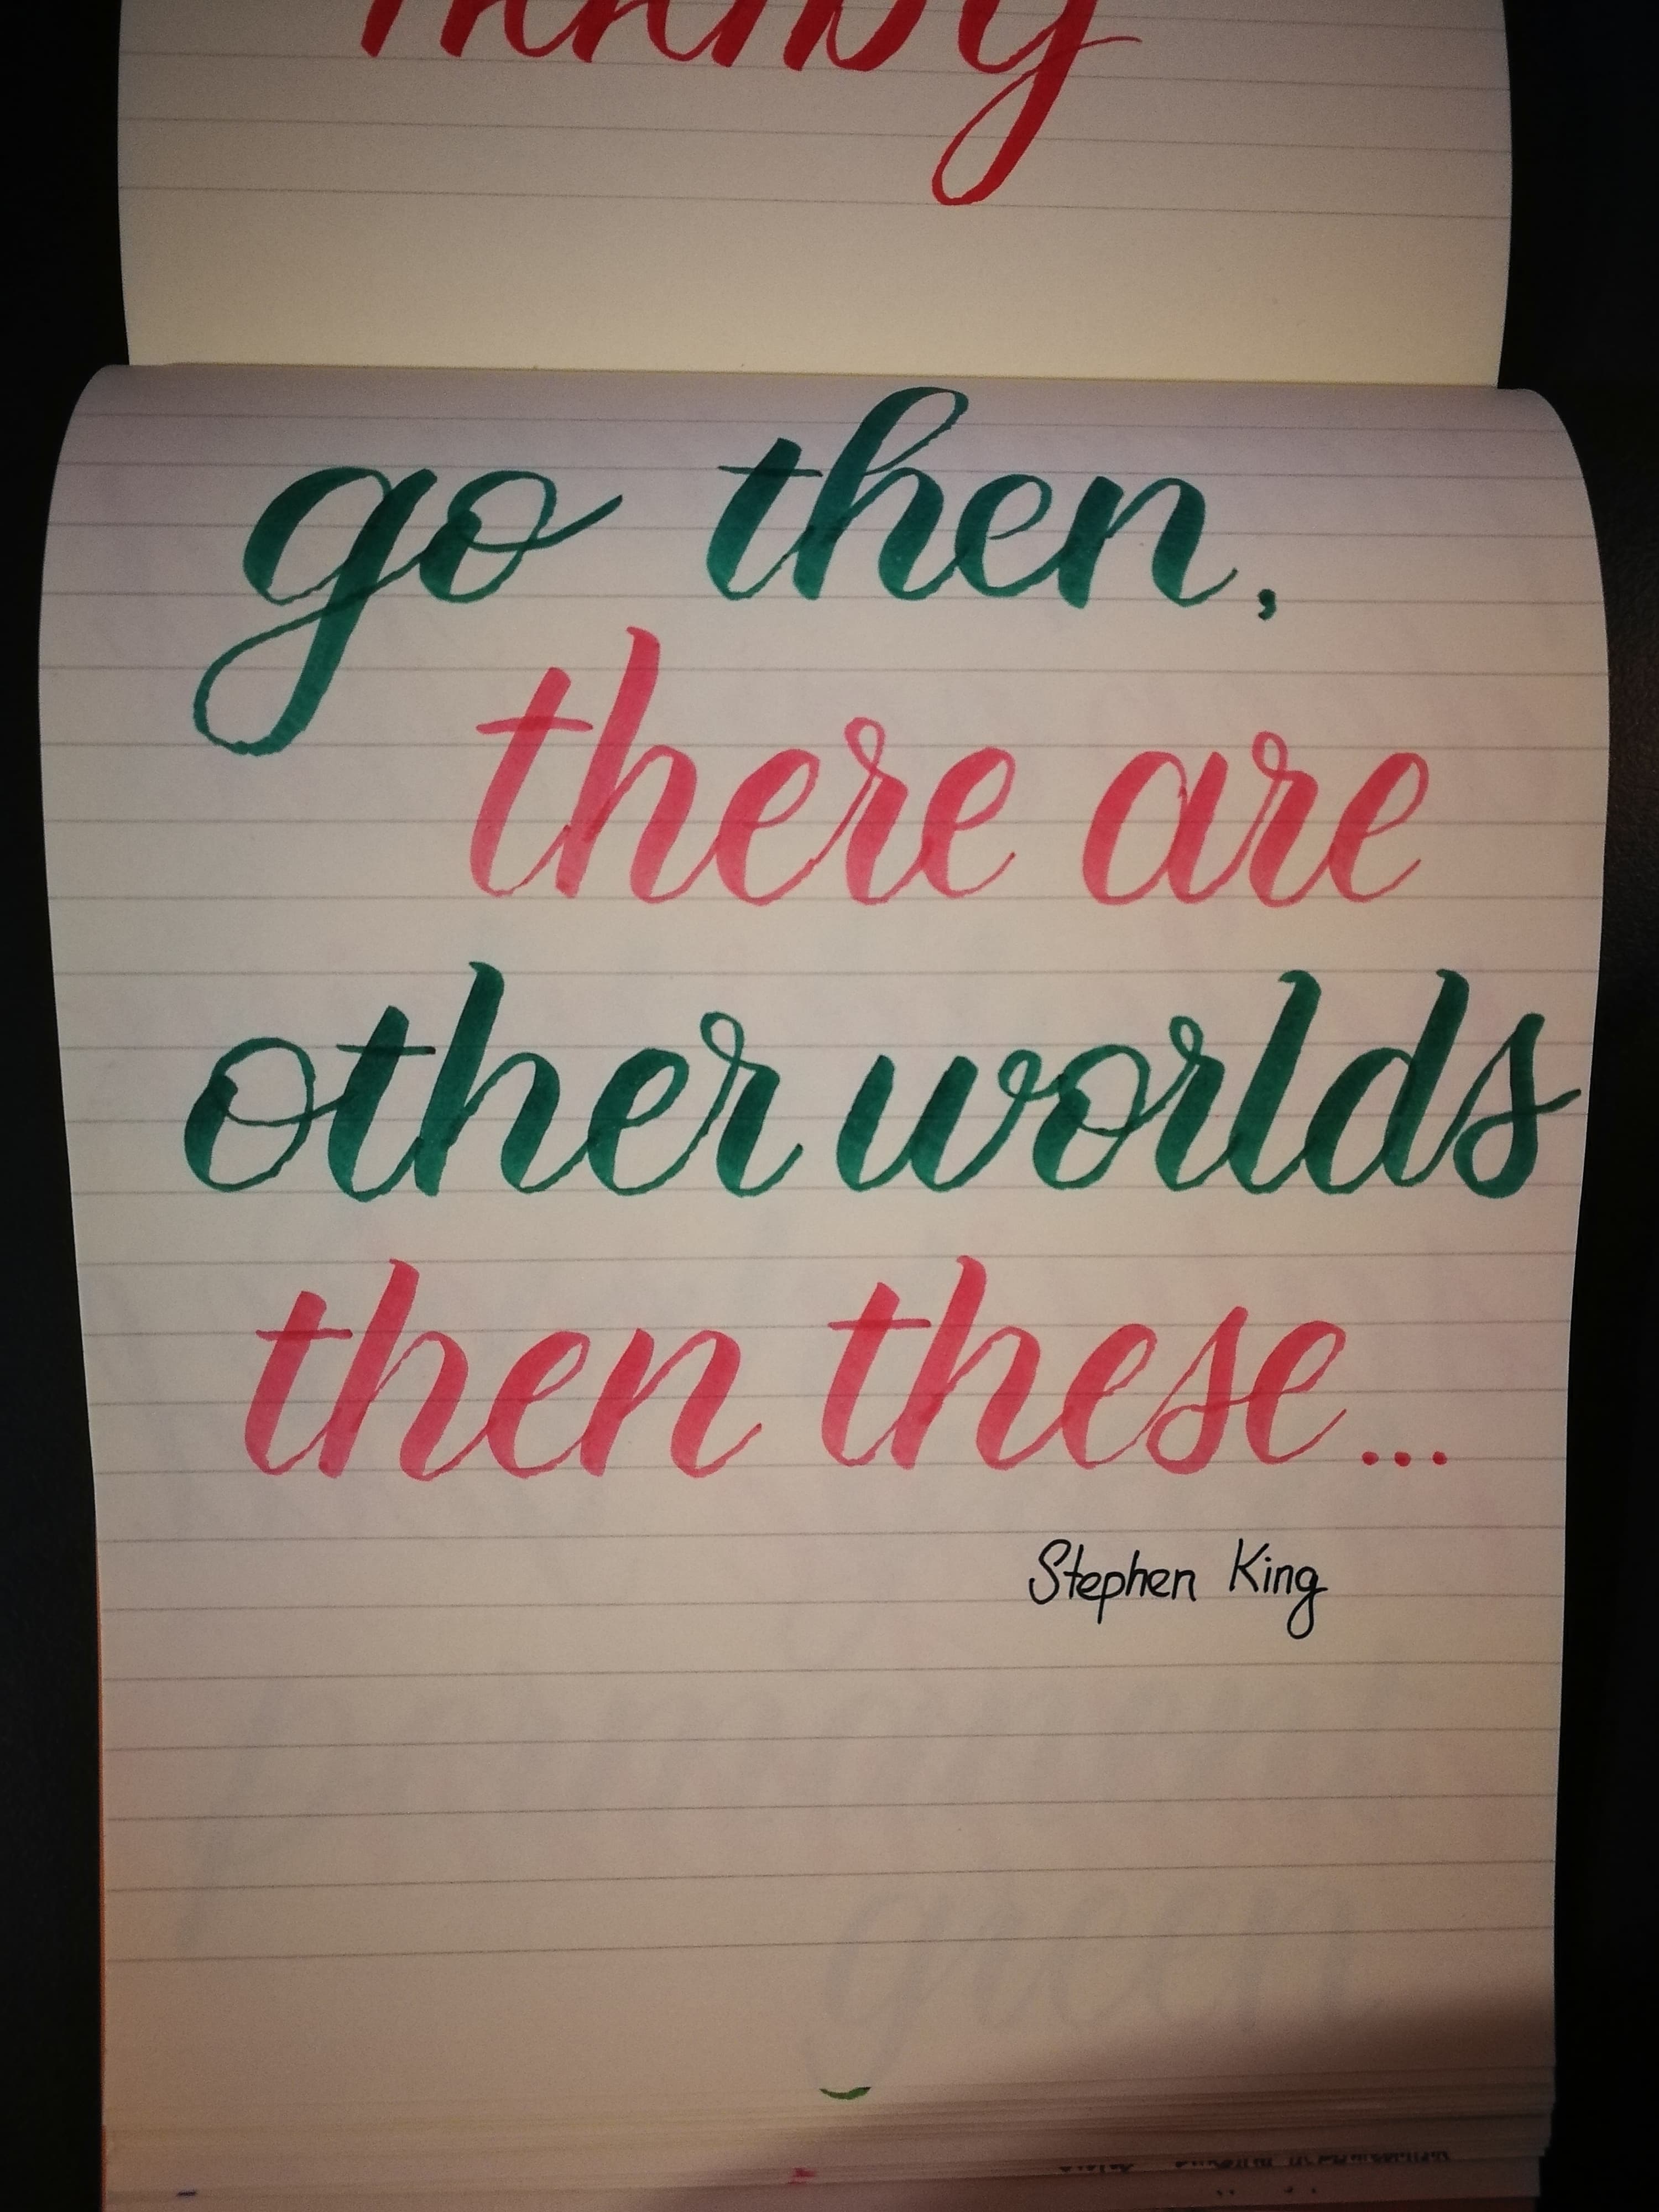 go then,
there are
other worlds
then these...
Stephen King
green